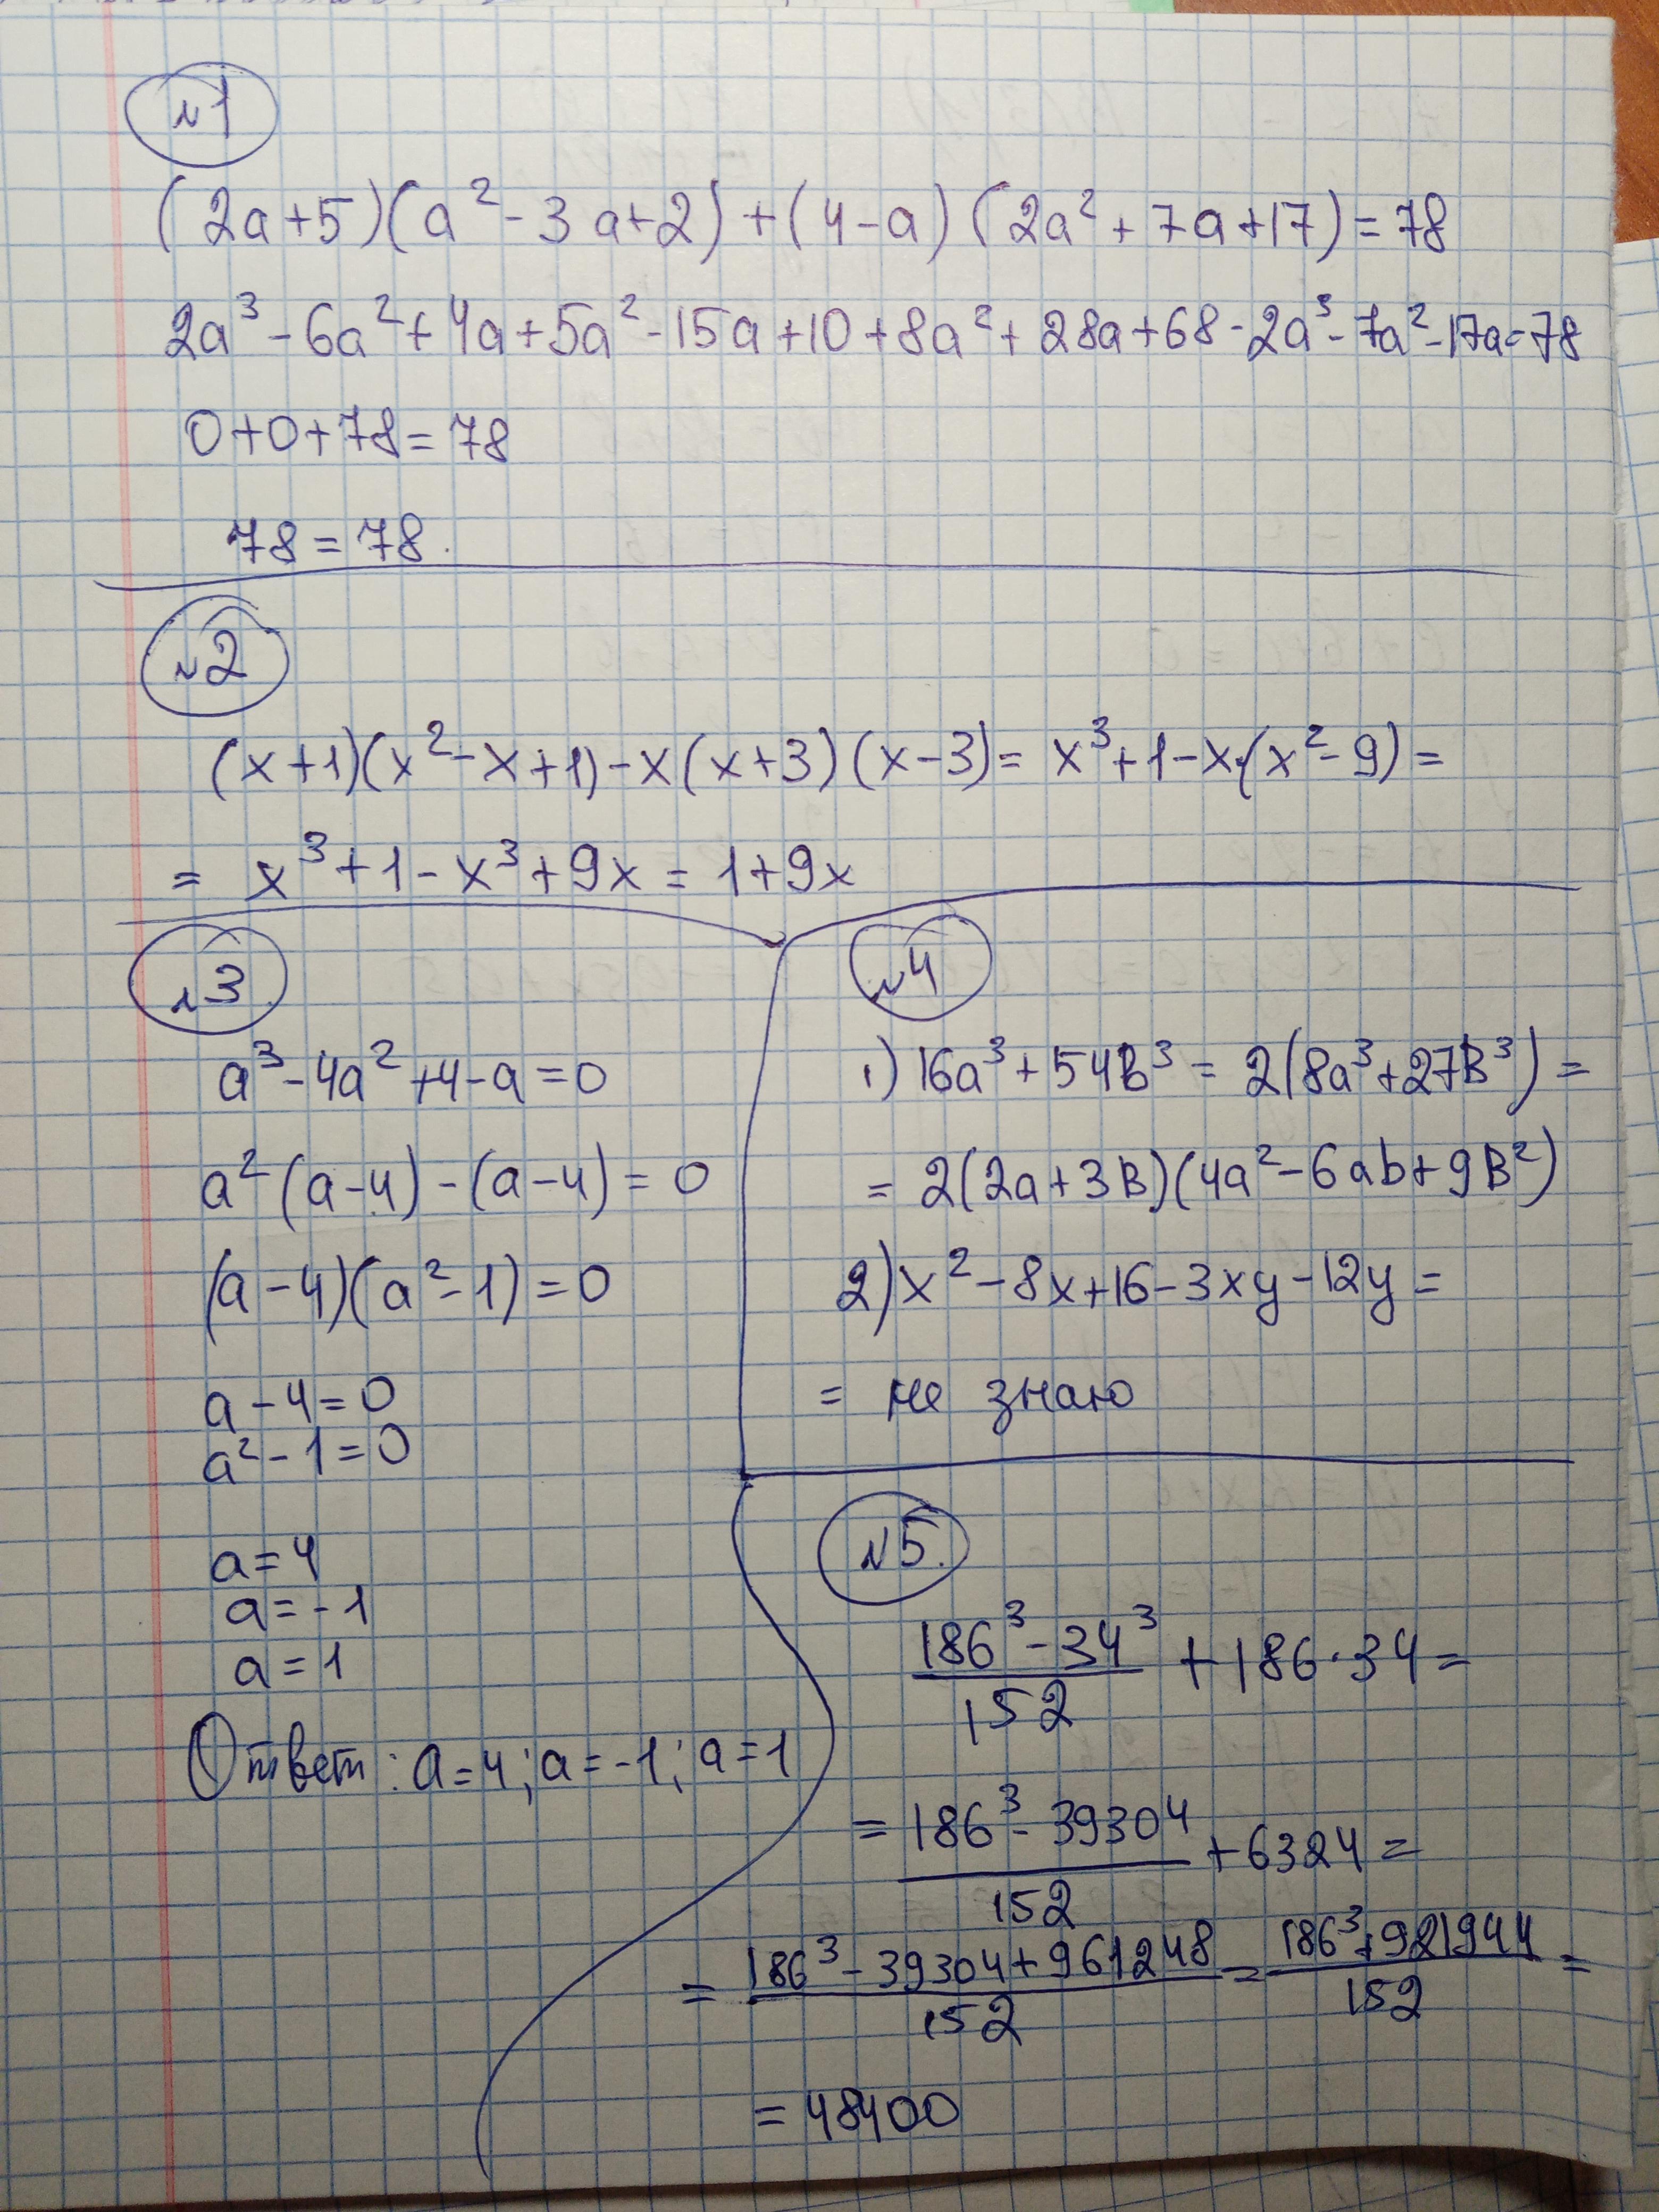 №1
(2a+5)(a²-3a+2)+(4-a)(2a²+7a+17)=78
2a³-6a²+4a+5a²-15a+10+8a²+28a+68-2a³-7a²-17a=78
0+0+78=78
78=78.
№2
(x+1)(x²-x+1)-x(x+3)(x-3)= x³+1-x·(x²-9)=
= x³+1-x³+9x = 1+9x
№3
a³-4a²+4-a=0
a²(a-4)-(a-4)=0
(a-4)(a²-1)=0
a-4=0
a²-1=0
a=4
a=-1
a=1
Ответ: a=4; a=-1; a=1
№4
1) 16a³+54B³ = 2(8a³+27B³)=
= 2(2a+3B)(4a²-6ab+9B²)
2) x²-8x+16-3xy-12y=
= не знаю
№5.
(186³-34³)/152 + 186·34=
= (186³-39304)/152 + 6324=
= (186³-39304+961248)/152 = (186³+921944)/152 =
= 48400